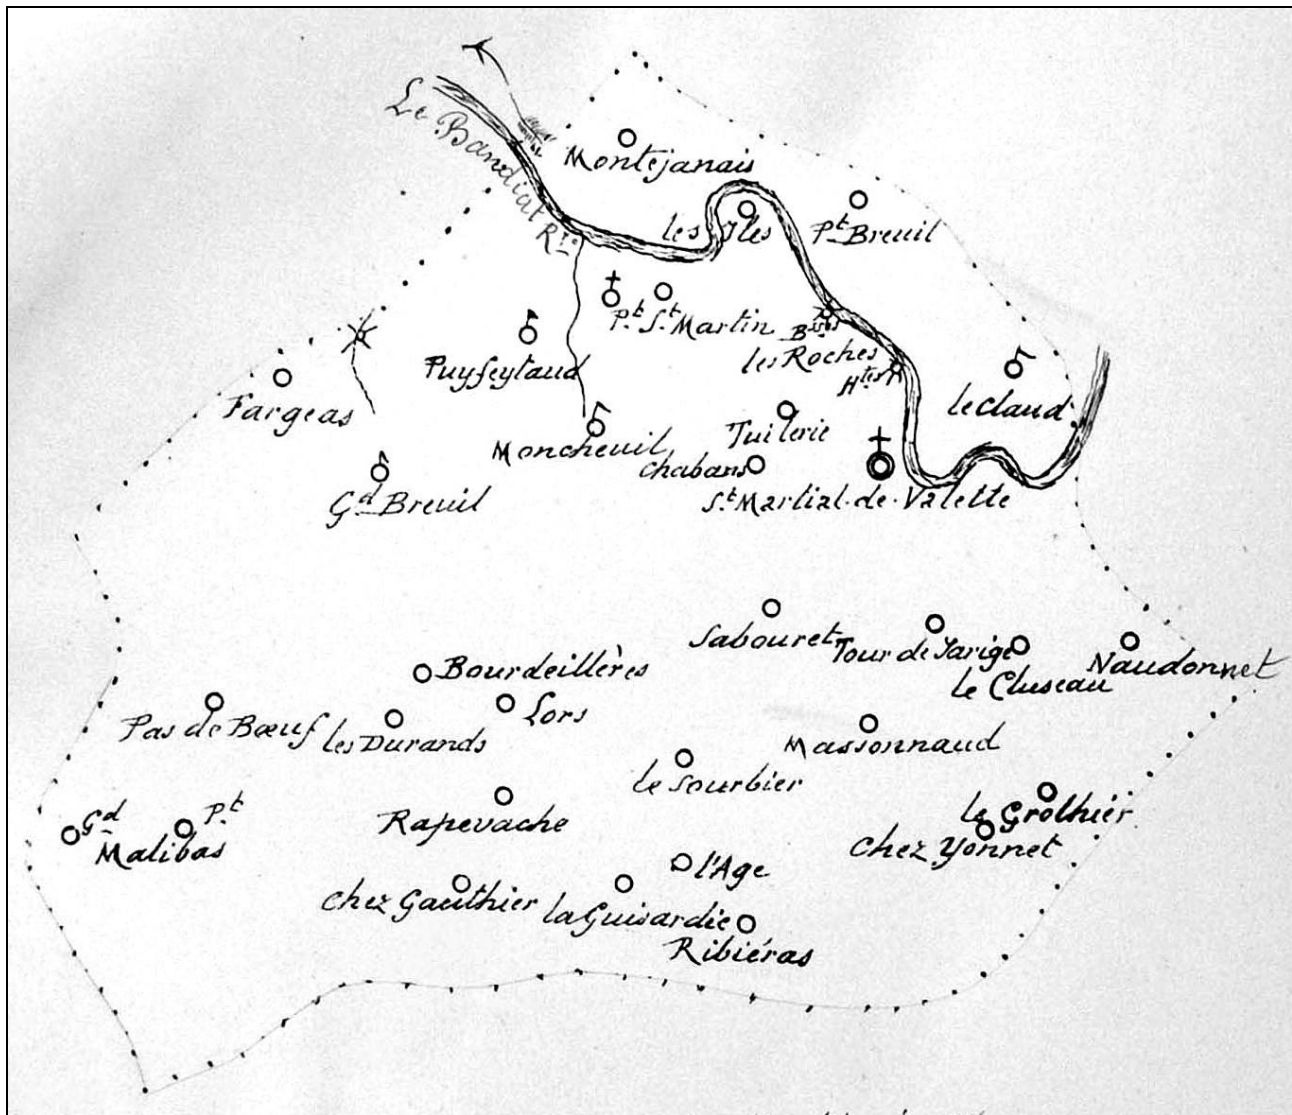 Le Bandiat Rre
Montejanais
les Iles
Pt Breuil
Pt St Martin
Bsses
les Roches
Htes
Puyfeytaud
le Claud
Fargeas
Moncheuil
Tuilerie
Chabans
Gd Breuil
St Martial-de-Valette
Sabouret
Tour de Jarige
le Cluseau
Naudonnet
Bourdeillères
Lors
Pas de Bœuf
les Durands
Massonnaud
le Sourbier
Gd
Pt
Malibas
Rapevache
le Grolhier
Chez Yonnet
l'Age
Chez Gauthier
la Guisardie
Ribiéras